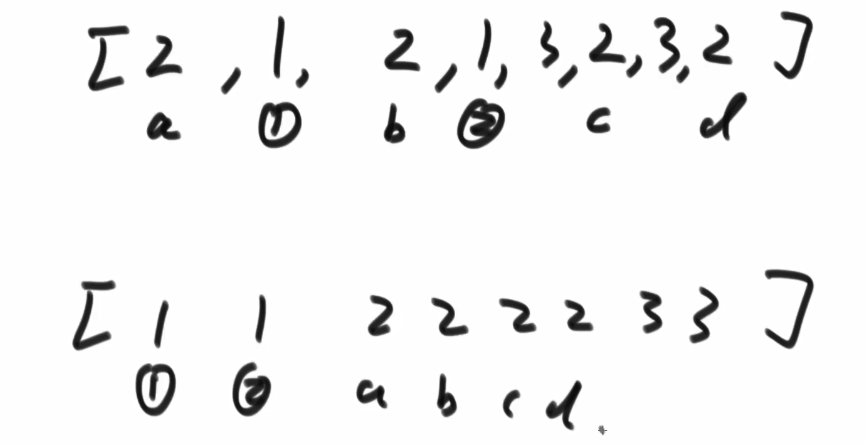 [2, 1, 2, 1, 3, 2, 3, 2]
a ① b ② c d
[1 1 2 2 2 2 3 3]
① ② a b c d